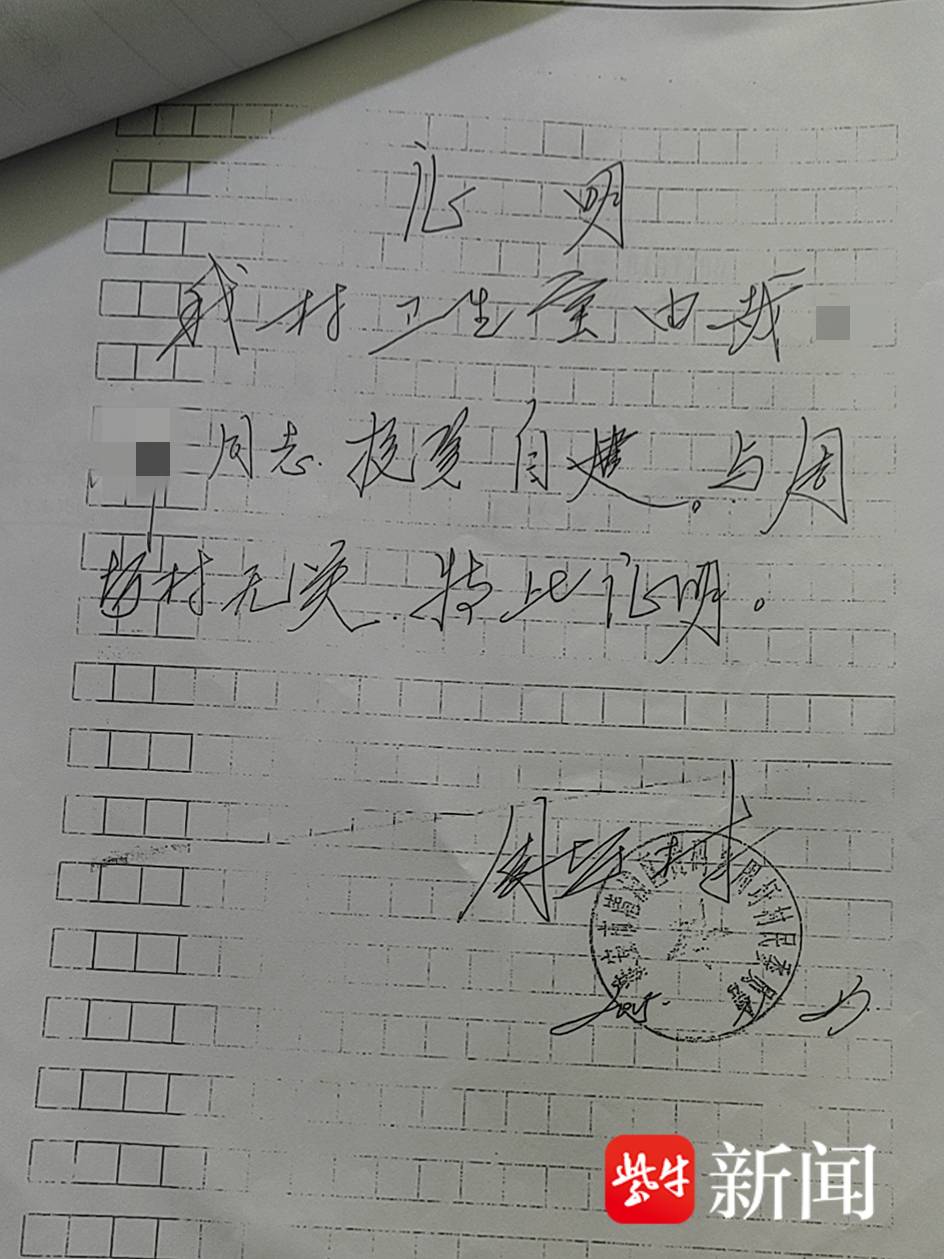 证明
我村卫生室由我
同志投资自建。与周
圩村无关.特此证明。
周圩村
周圩村民委员会
2015.
紫牛新闻